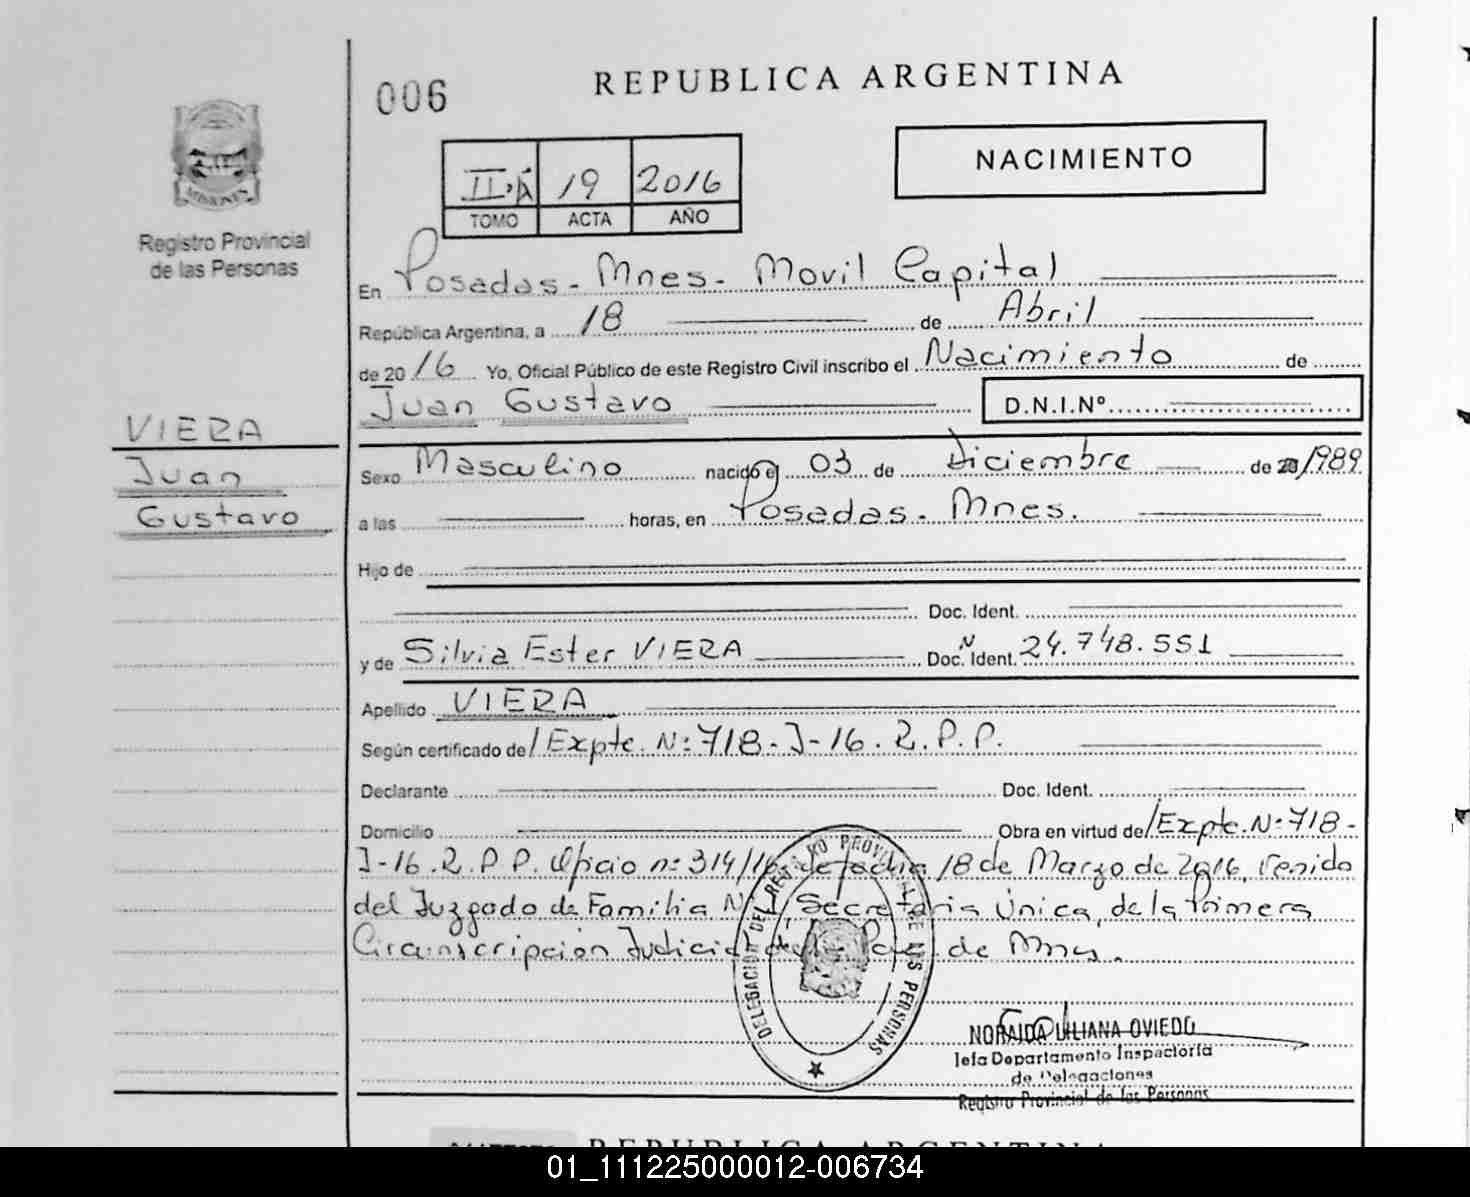 006
REPUBLICA ARGENTINA
MISIONES
Registro Provincial
de las Personas
II·A 19 2016
TOMO ACTA AÑO
NACIMIENTO
En Posadas - Mnes - Movil Capital
República Argentina, a 18 de Abril
de 2016 Yo, Oficial Público de este Registro Civil inscribo el Nacimiento de
Juan Gustavo D.N.I.Nº
VIERA
Juan
Gustavo
Sexo Masculino nacido el 03 de Diciembre de 1989
a las horas, en Posadas - Mnes.
Hijo de
Doc. Ident.
y de Silvia Ester VIERA Doc. Ident. N 24.748.551
Apellido VIERA
Según certificado de/ Expte. Nº 718-J-16. R.P.P.
Declarante Doc. Ident.
Domicilio Obra en virtud de/ Expte. Nº 718-
J-16. R.P.P. Oficio nº 314/16, de fecha 18 de Marzo de 2016, venido
del Juzgado de Familia Nº 1, Secretaria Única, de la Primera
Circunscripción Judicial de de Mnes.
DELEGACION DEL REGISTRO PROVINCIAL DE LAS PERSONAS
NORAIDA LILIANA OVIEDO
Jefa Departamento Inspectoría
de Delegaciones
Registro Provincial de las Personas
REPUBLICA ARGENTINA
01_111225000012-006734